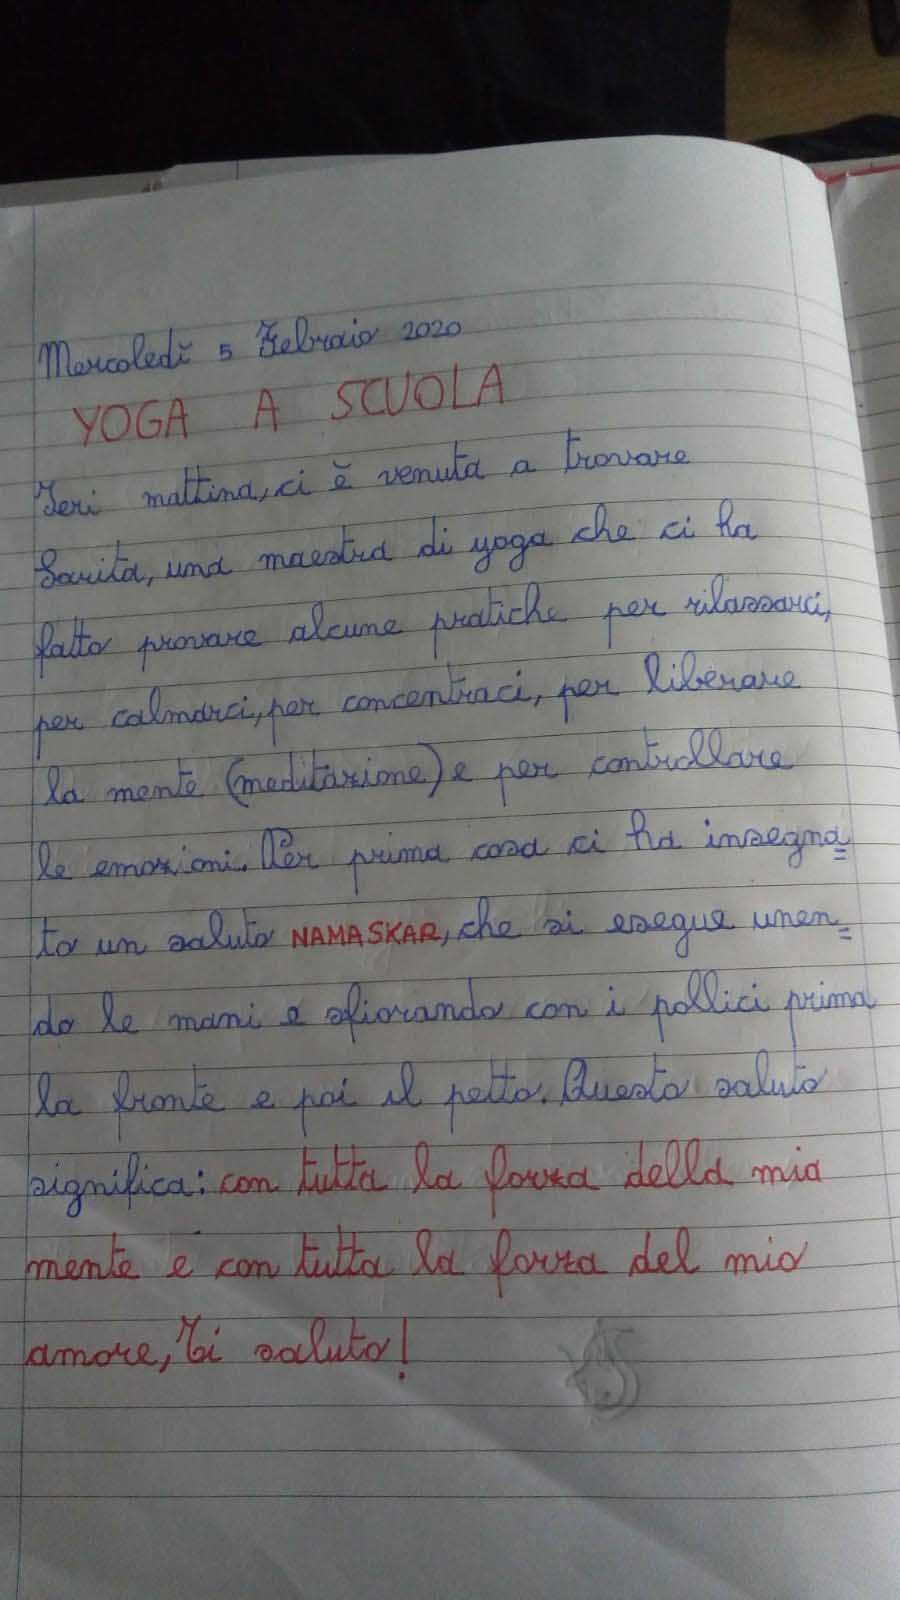 Mercoledì 5 Febraio 2020
YOGA A SCUOLA
Ieri mattina, ci è venuta a trovare
Sarita, una maestra di yoga che ci ha
fatto provare alcune pratiche per rilassarci,
per calmarci, per concentraci, per liberare
la mente (meditazione) e per controllare
le emozioni. Per prima cosa ci ha insegna=
to un saluto NAMASKAR, che si esegue unen=
do le mani e sfiorando con i pollici prima
la fronte e poi il petto. Questo saluto
significa: con tutta la forza della mia
mente e con tutta la forza del mio
amore, Ti saluto!